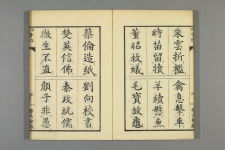 朱雲折檻 禽息擊車
時苗留犢 羊續懸魚
董昭救蟻 毛寶放龜
蔡倫造紙 劉向校書
楚英信佛 秦政坑儒
微生不直 顏子非愚